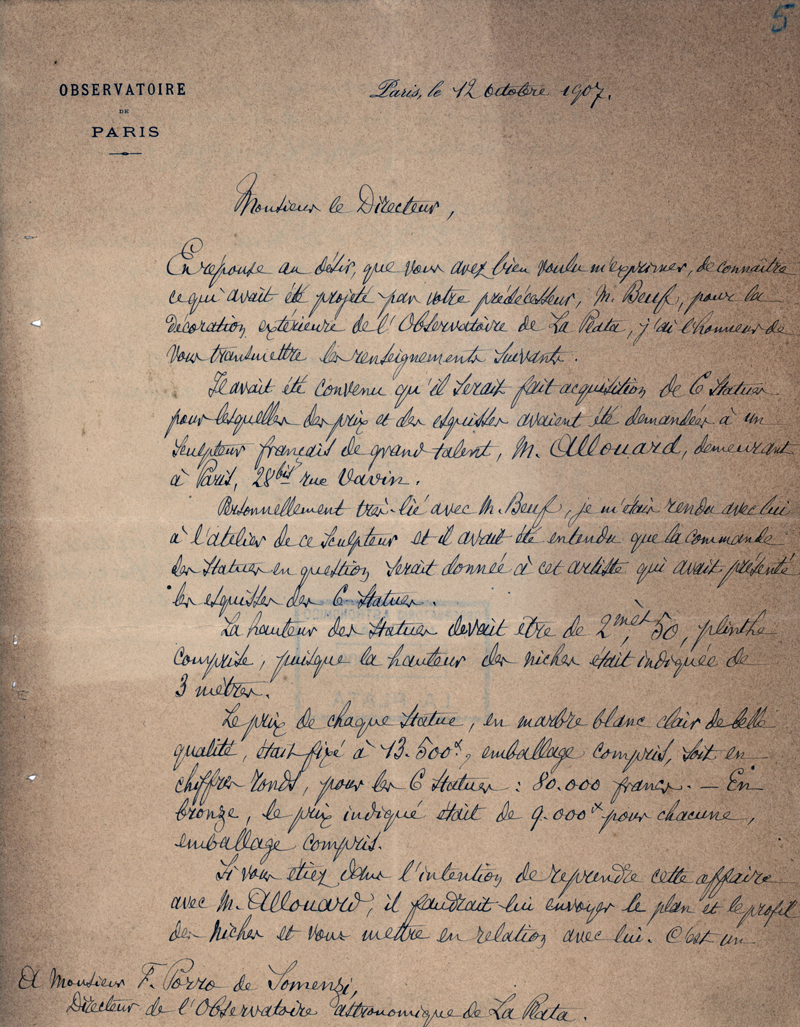 5
OBSERVATOIRE
DE
PARIS
Paris, le 12 Octobre 1907.
Monsieur le Directeur,
En réponse au désir, que vous avez bien voulu m'exprimer, de connaître
ce qui avait été projeté par votre prédécesseur, M. Beuf, pour la
décoration extérieure de l'Observatoire de La Plata, j'ai l'honneur de
vous transmettre les renseignements suivants.
Il avait été convenu qu'il serait fait acquisition de 6 statues
pour lesquelles des prix et des esquisses avaient été demandés à un
sculpteur français de grand talent, M. Allouard, demeurant
à Paris, 28bis rue Vavin.
Personnellement très lié avec M. Beuf, je m'étais rendu avec lui
à l'atelier de ce sculpteur et il avait été entendu que la commande
des statues en question serait donnée à cet artiste qui avait présenté
les esquisses des 6 statues.
La hauteur des statues devait être de 2mèt,50, plinthe
comprise, puisque la hauteur des niches était indiquée de
3 mètres.
Le prix de chaque statue, en marbre blanc clair de belle
qualité, était fixé à 13.500f, emballage compris, soit en
chiffres ronds, pour les 6 statues : 80.000 francs. — En
bronze, le prix indiqué était de 9.000f pour chacune,
emballage compris.
Si vous étiez dans l'intention de reprendre cette affaire
avec M. Allouard, il faudrait lui envoyer le plan et le profil
des niches et vous mettre en relation avec lui. C'est un
A Monsieur F. Porro de Somenzi,
Directeur de l'Observatoire astronomique de La Plata.